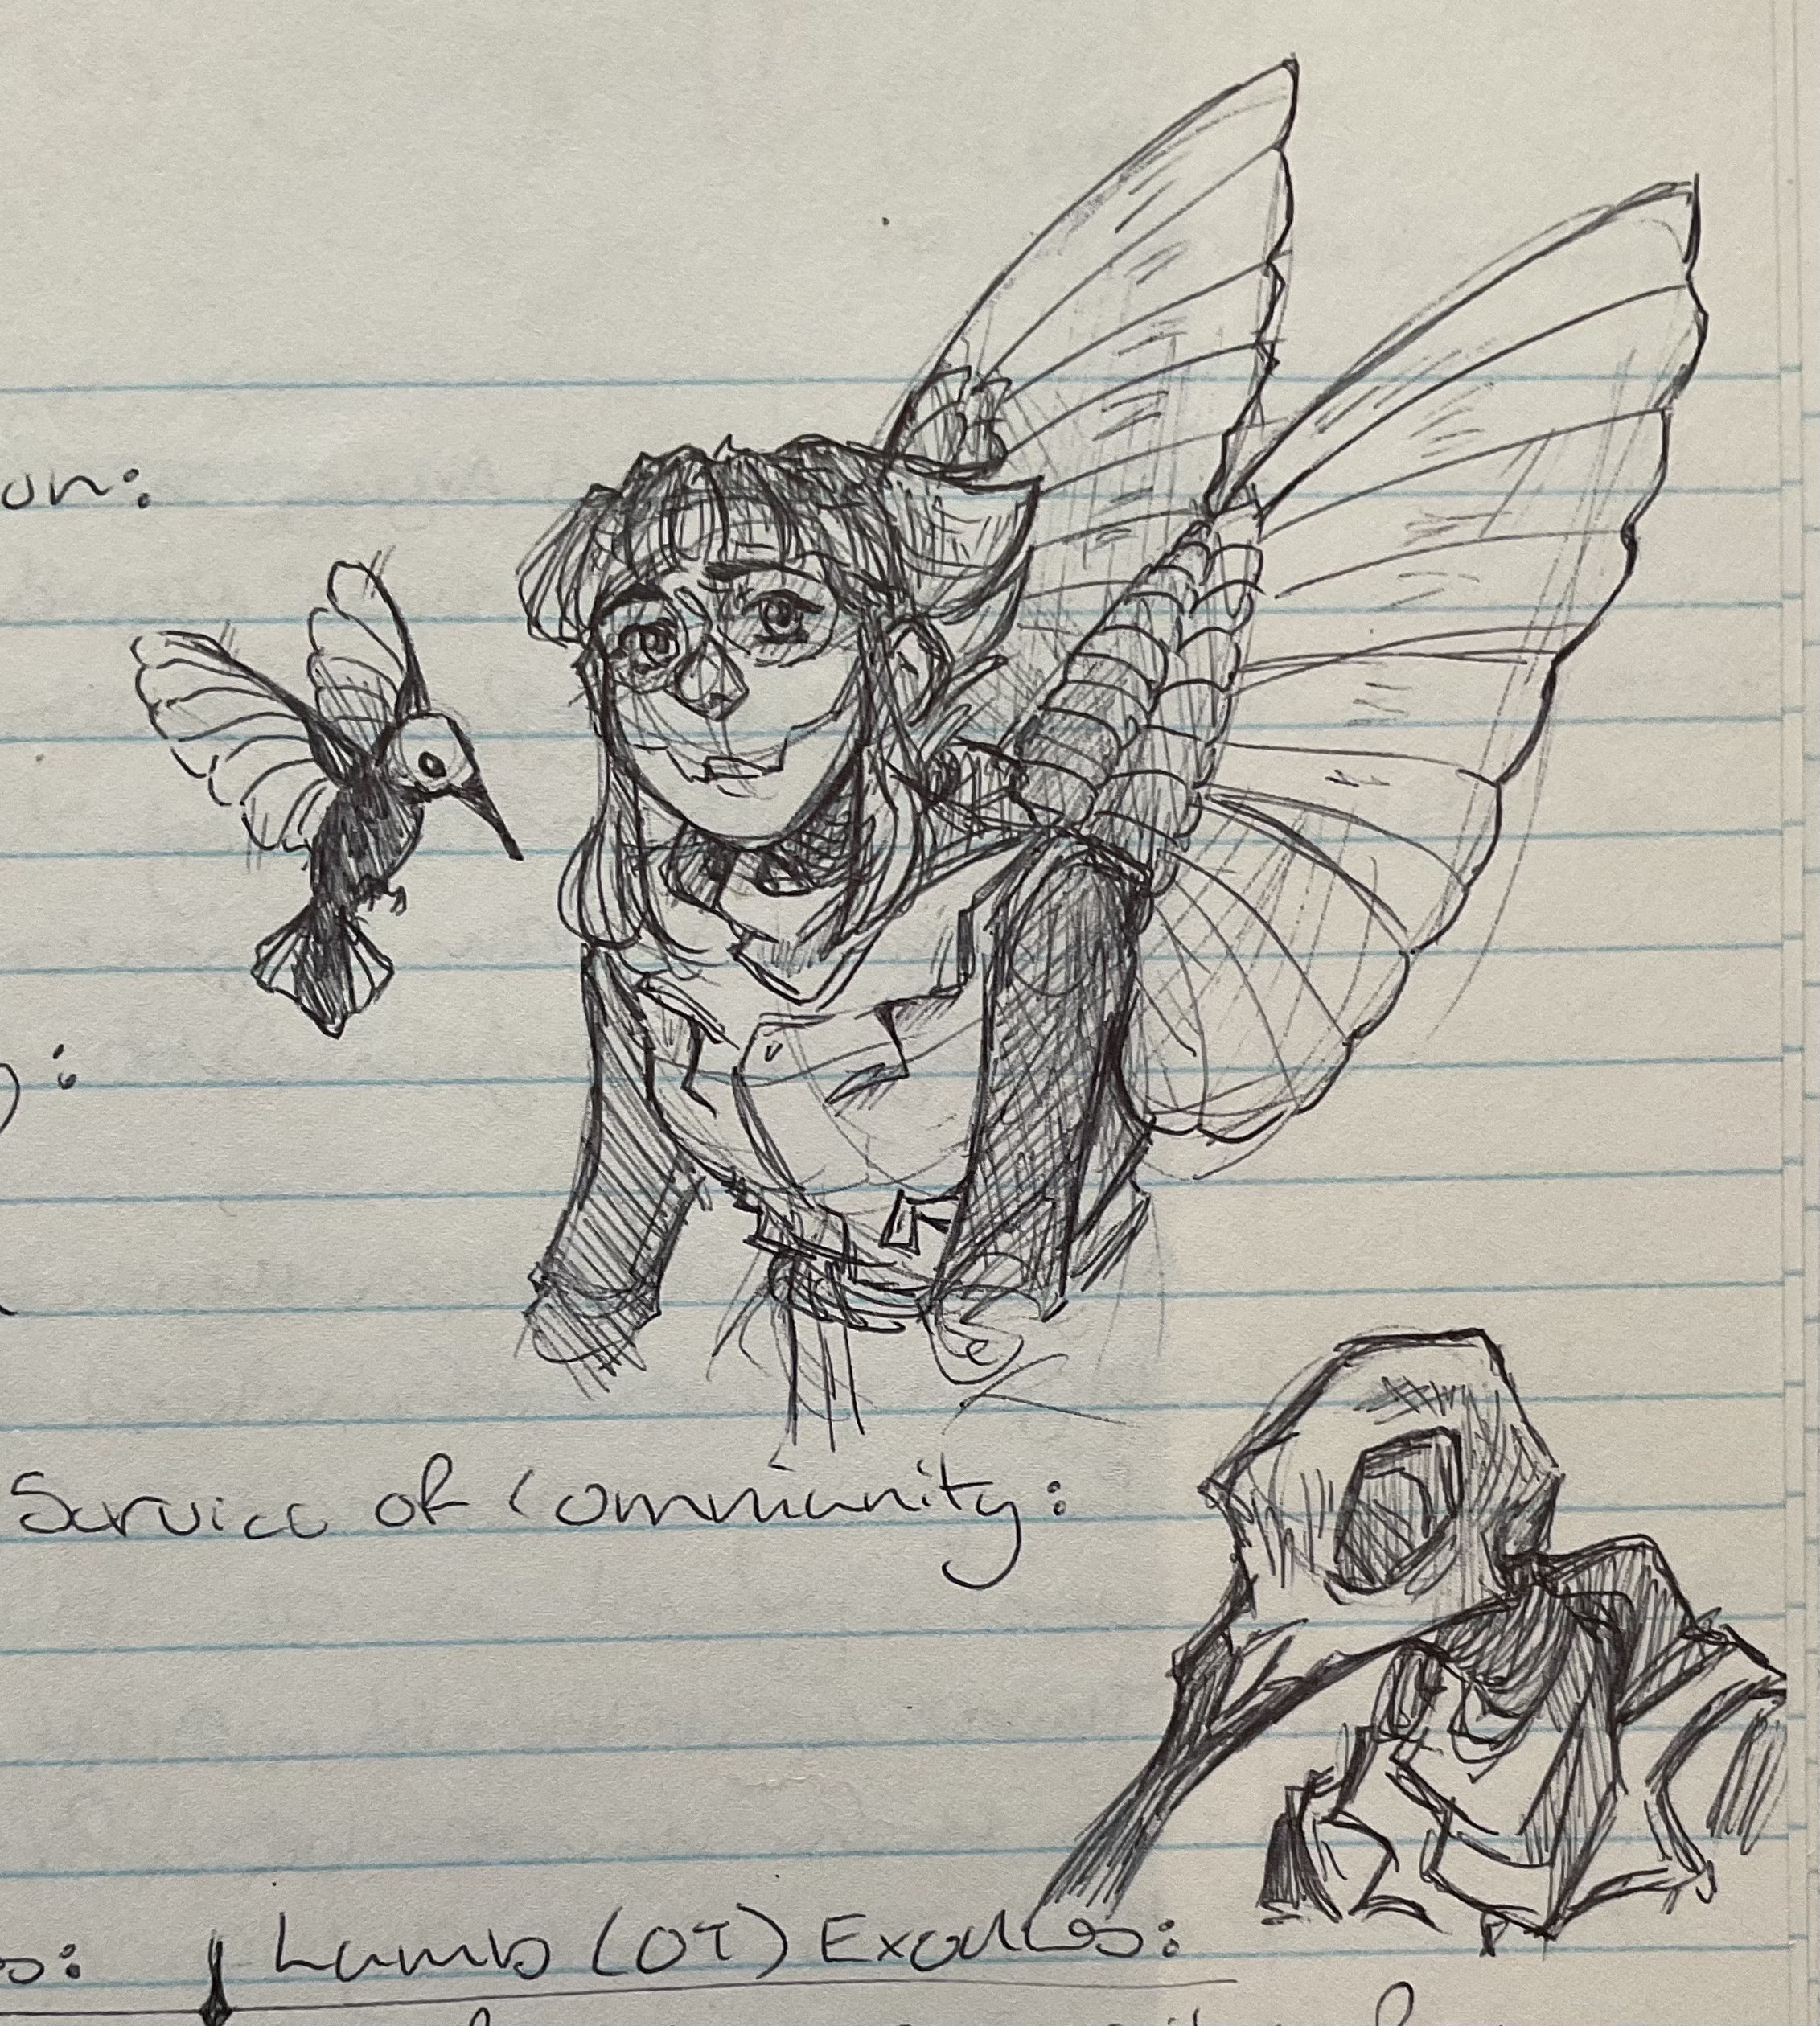 on:
:
Service of Community:
s: Lamb (OT) Exodus: